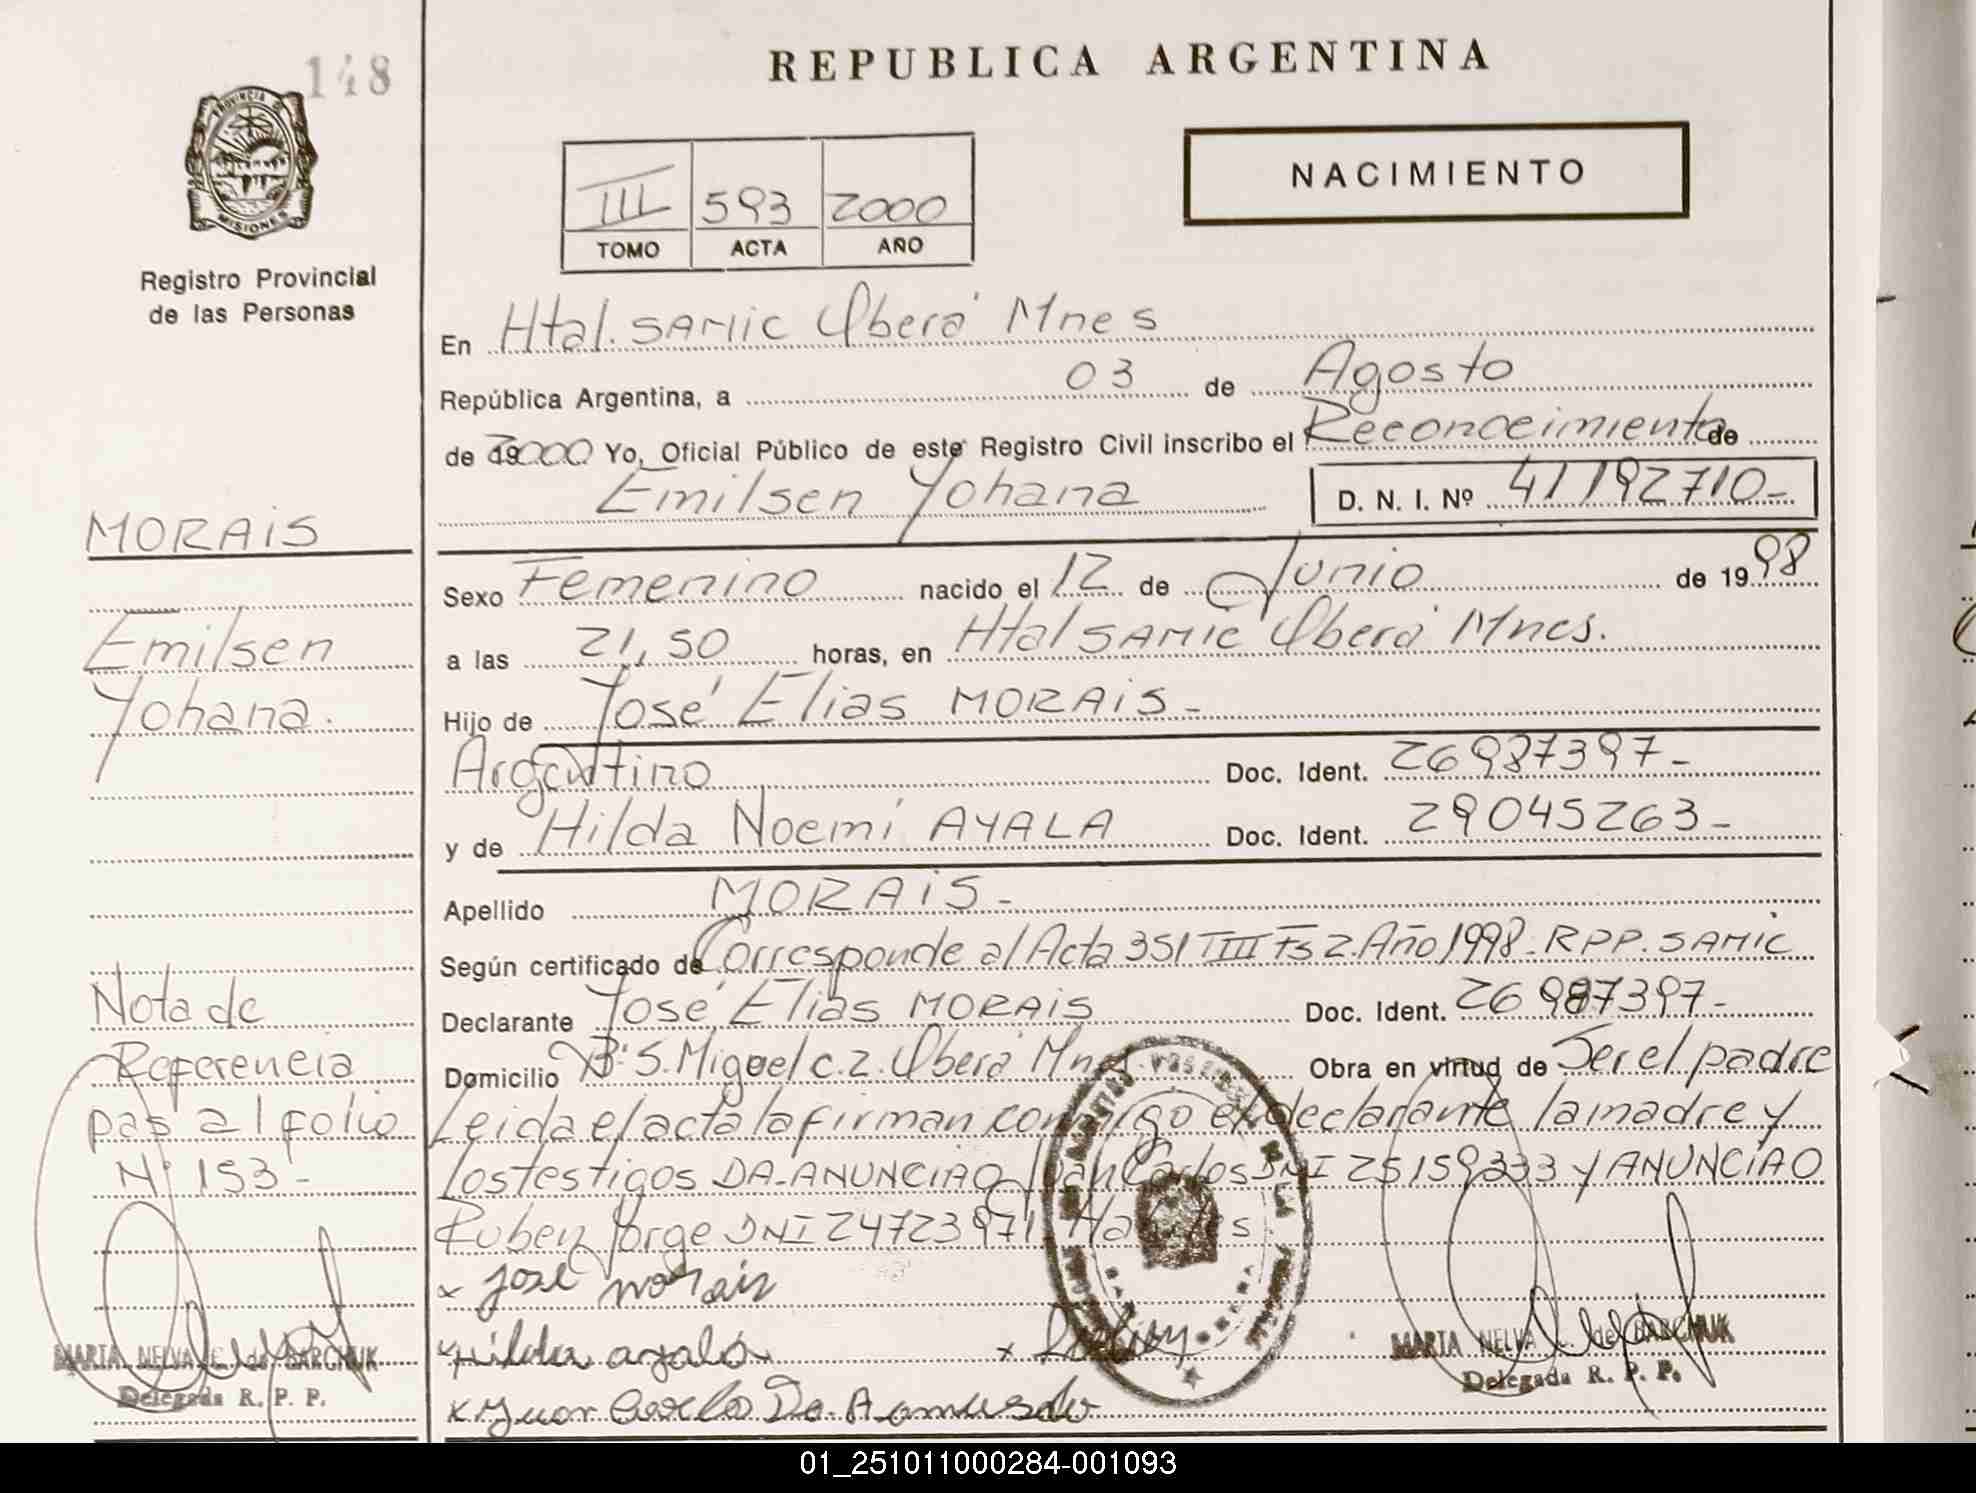 148
REPUBLICA ARGENTINA
PROVINCIA DE
MISIONES
III 593 2000
TOMO ACTA AÑO
NACIMIENTO
Registro Provincial
de las Personas
En Htal. SAMIC Oberá Mnes
República Argentina, a 03 de Agosto
de 2000 Yo, Oficial Público de este Registro Civil inscribo el Reconocimiento de
Emilsen Yohana D. N. I. Nº 41192710-
MORAiS
Sexo Femenino nacido el 12 de Junio de 1998
Emilsen
a las 21,50 horas, en Htal SAMIC Oberá Mnes.
Yohana.
Hijo de José Elias MORAiS-
Argentino Doc. Ident. 26987397-
y de Hilda Noemí AYALA Doc. Ident. 29045263-
Apellido MORAiS-
Según certificado de Corresponde al Acta 351 TIII Fs 2. Año 1998. RPP. SAMIC
Nota de
Declarante José Elias MORAiS Doc. Ident. 26987397-
Referencia
Domicilio Bº S. Miguel c. 2. Oberá Mnes. Obra en virtud de Ser el padre
pas al folio
Leida el acta la firman conmigo el declarante la madre y
Nº 153-
los testigos DA-ANUNCIAO Juan Carlos DNI 25159333 y ANUNCIAO
Ruben Jorge DNI 24723971
x José Morais
Hilda ayala x
MARTA NELVA de BARCHUK
Delegada R. P. P.
MARTA NELVA de BARCHUK
Delegada R. P. P.
x Juan Carlos Da
01_251011000284-001093